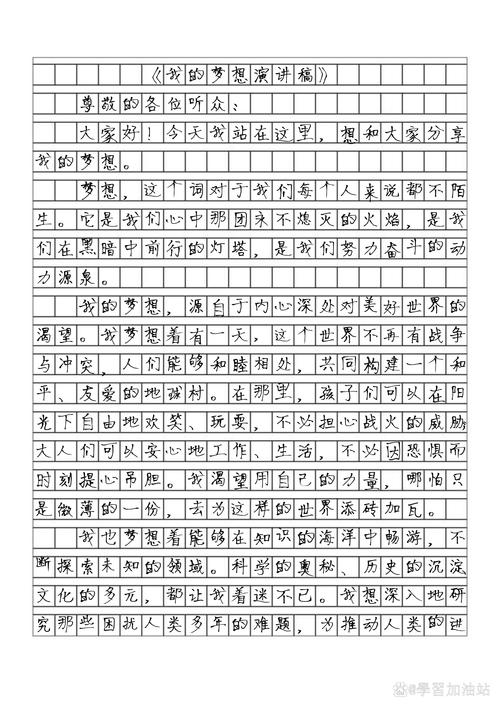 《我的梦想演讲稿》
尊敬的各位听众、
大家好！今天我站在这里，想和大家分享
我的梦想。
梦想，这个词对于我们每个人来说都不陌
生。它是我们心中那团永不熄灭的火焰，是我
们在黑暗中前行的灯塔，是我们努力奋斗的动
力源泉。
我的梦想，源自于内心深处对美好世界的
渴望。我梦想着有一天，这个世界不再有战争
与冲突，人们能够和睦相处，共同构建一个和
平、友爱的地球村。在那里，孩子们可以在阳
光下自由地欢笑、玩耍，不必担心战火的威胁
大人们可以安心地工作、生活，不必因恐惧而
时刻提心吊胆。我渴望用自己的力量，哪怕只
是微薄的一份，去为这样的世界添砖加瓦。
我也梦想着能够在知识的海洋中畅游，不
断探索未知的领域。科学的奥秘、历史的沉淀
文化的多元，都让我着迷不已。我想深入地研
究那些困扰人类多年的难题，为推动人类的进
@學習加油站